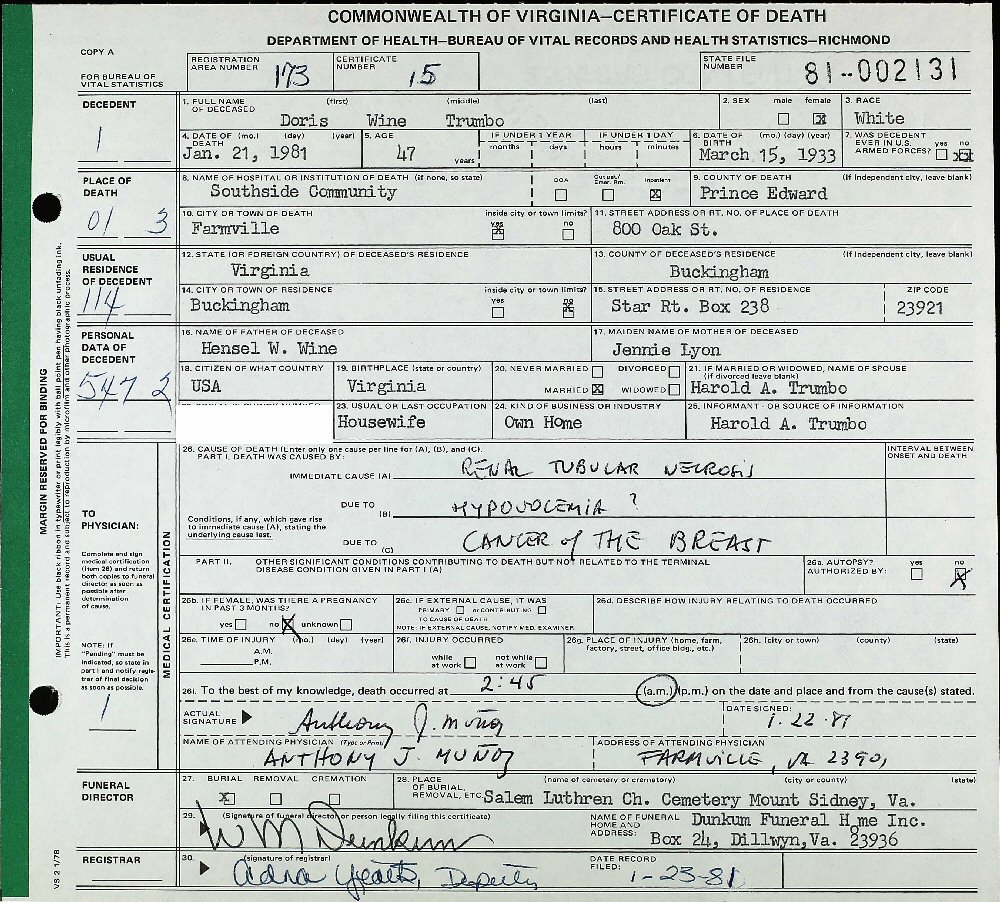 COMMONWEALTH OF VIRGINIA—CERTIFICATE OF DEATH
DEPARTMENT OF HEALTH—BUREAU OF VITAL RECORDS AND HEALTH STATISTICS—RICHMOND
COPY A
FOR BUREAU OF VITAL STATISTICS
REGISTRATION AREA NUMBER 173
CERTIFICATE NUMBER 15
STATE FILE NUMBER 81-002131
DECEDENT
1
1. FULL NAME OF DECEASED (first) (middle) (last)
Doris Wine Trumbo
2. SEX male female ☒
3. RACE
White
4. DATE OF DEATH (mo.) (day) (year)
Jan. 21, 1981
5. AGE
47 years
IF UNDER 1 YEAR months days
IF UNDER 1 DAY hours minutes
6. DATE OF BIRTH (mo.) (day) (year)
March 15, 1933
7. WAS DECEDENT EVER IN U.S. ARMED FORCES? yes no
PLACE OF DEATH
01 3
8. NAME OF HOSPITAL OR INSTITUTION OF DEATH (if none, so state)
Southside Community
DOA Inpatient
9. COUNTY OF DEATH (If independent city, leave blank)
Prince Edward
10. CITY OR TOWN OF DEATH inside city or town limits? yes no
Farmville
11. STREET ADDRESS OR RT. NO. OF PLACE OF DEATH
800 Oak St.
USUAL RESIDENCE OF DECEDENT
114
12. STATE (OR FOREIGN COUNTRY) OF DECEASED'S RESIDENCE
Virginia
13. COUNTY OF DECEASED'S RESIDENCE (If independent city, leave blank)
Buckingham
14. CITY OR TOWN OF RESIDENCE inside city or town limits? yes no
Buckingham
15. STREET ADDRESS OR RT. NO. OF RESIDENCE
Star Rt. Box 238
ZIP CODE
23921
PERSONAL DATA OF DECEDENT
547 2
16. NAME OF FATHER OF DECEASED
Hensel W. Wine
17. MAIDEN NAME OF MOTHER OF DECEASED
Jennie Lyon
18. CITIZEN OF WHAT COUNTRY
USA
19. BIRTHPLACE (state or country)
Virginia
20. NEVER MARRIED DIVORCED
MARRIED ☒ WIDOWED
21. IF MARRIED OR WIDOWED, NAME OF SPOUSE (if divorced leave blank)
Harold A. Trumbo
23. USUAL OR LAST OCCUPATION
Housewife
24. KIND OF BUSINESS OR INDUSTRY
Own Home
25. INFORMANT - OR SOURCE OF INFORMATION
Harold A. Trumbo
MARGIN RESERVED FOR BINDING
IMPORTANT: Use black ribbon in typewriter or print legibly with ball point pen having black unfading ink.
This is a permanent record and subject to reproduction by microfilm and other photographic process.
TO PHYSICIAN:
Complete and sign medical certification (Item 26) and return both copies to funeral director as soon as possible after determination of cause.
NOTE: If "Pending" must be indicated, so state in part I and notify registrar of final decision as soon as possible.
1
MEDICAL CERTIFICATION
26. CAUSE OF DEATH (Enter only one cause per line for (A), (B), and (C).
PART I. DEATH WAS CAUSED BY:
INTERVAL BETWEEN ONSET AND DEATH
IMMEDIATE CAUSE (A) RENAL TUBULAR NECROSIS
DUE TO (B) HYPOVOLEMIA ?
Conditions, if any, which gave rise to immediate cause (A), stating the underlying cause last.
DUE TO (C) CANCER of THE BREAST
PART II. OTHER SIGNIFICANT CONDITIONS CONTRIBUTING TO DEATH BUT NOT RELATED TO THE TERMINAL DISEASE CONDITION GIVEN IN PART I (A)
26a. AUTOPSY? AUTHORIZED BY: yes no
26b. IF FEMALE, WAS THERE A PREGNANCY IN PAST 3 MONTHS?
yes no unknown
26c. IF EXTERNAL CAUSE, IT WAS
PRIMARY or CONTRIBUTING
TO CAUSE OF DEATH
NOTE: IF EXTERNAL CAUSE, NOTIFY MED. EXAMINER
26d. DESCRIBE HOW INJURY RELATING TO DEATH OCCURRED
26e. TIME OF INJURY (mo.) (day) (year)
A.M.
P.M.
26f. INJURY OCCURRED
while at work not while at work
26g. PLACE OF INJURY (home, farm, factory, street, office bldg., etc.)
26h. (city or town) (county) (state)
26i. To the best of my knowledge, death occurred at 2:45 (a.m.) (p.m.) on the date and place and from the cause(s) stated.
ACTUAL SIGNATURE Anthony J. Muñoz
DATE SIGNED: 1-22-81
NAME OF ATTENDING PHYSICIAN (Type or Print)
ANTHONY J. MUÑOZ
ADDRESS OF ATTENDING PHYSICIAN
FARMVILLE, VA 23901
FUNERAL DIRECTOR
27. BURIAL REMOVAL CREMATION
28. PLACE OF BURIAL, REMOVAL, ETC. (name of cemetery or crematory) (city or county) (state)
Salem Luthren Ch. Cemetery Mount Sidney, Va.
29. (Signature of funeral director or person legally filing this certificate)
W M Dunkum
NAME OF FUNERAL HOME AND ADDRESS:
Dunkum Funeral H me Inc.
Box 24, Dillwyn, Va. 23936
REGISTRAR
30. (signature of registrar)
Deputy
DATE RECORD FILED: 1-23-81
VS 2 1/78